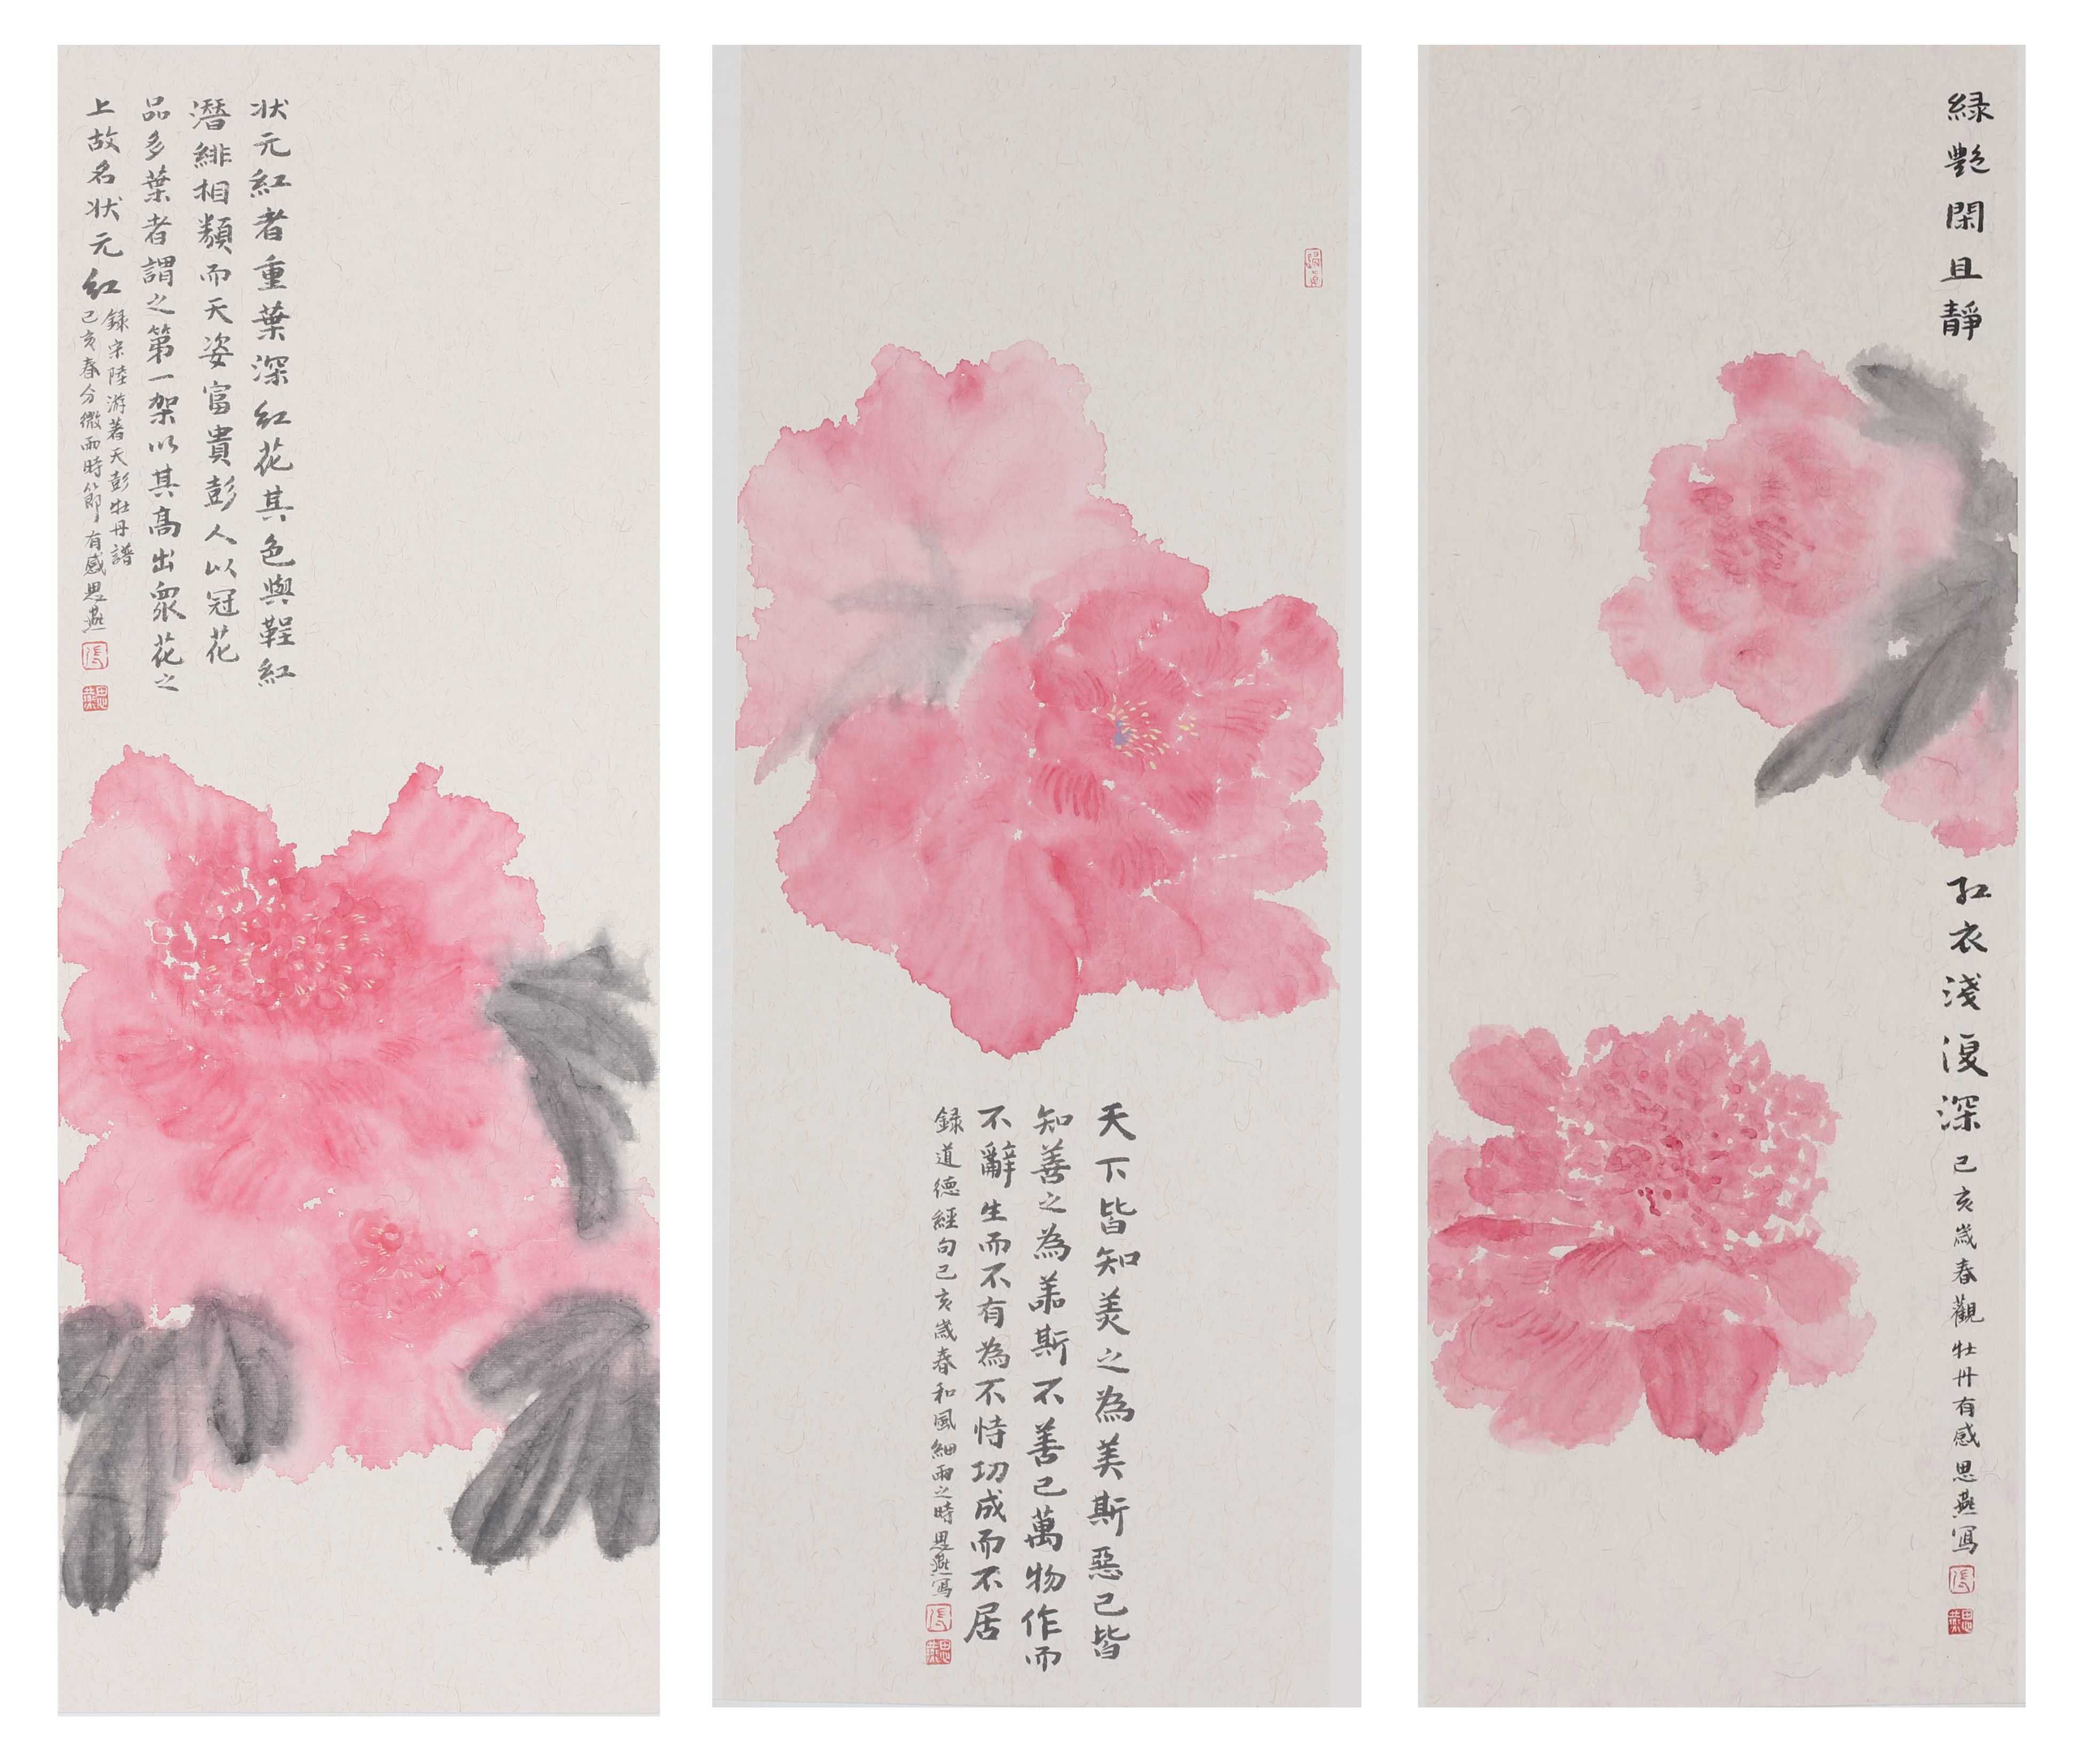 状元紅者重葉深紅花其色與鞓紅
潛緋相類而天姿富貴彭人以冠花
品多葉者謂之第一架以其高出衆花之
上故名状元紅
録宋陸游著天彭牡丹譜
己亥春分微雨時節有感思燕
張
思燕
天下皆知美之為美斯惡已皆
知善之為善斯不善已萬物作而
不辭生而不有為不恃功成而不居
録道德經句己亥歲春和風細雨之時思燕寫
張
思燕
緑艷閑且靜
紅衣淺復深
己亥歲春觀牡丹有感思燕寫
張
思燕